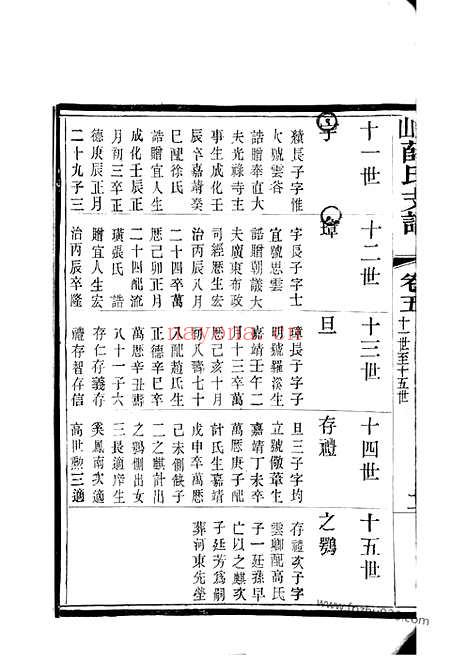 山薛氏支譜 卷五 十一世至十五世
十一世 十二世 十三世 十四世 十五世
璋 旦 存禮 之鶚
績長子字惟
大號雲
誥贈奉直大
夫光祿寺主
事生成化壬
辰卒嘉靖癸
巳配徐氏
誥贈宜人生
成化壬辰正
月初三卒正
德庚辰正月
二十九子三
字長子字士
宜號思雲
誥贈朝議大
夫廣東布政
司經歷生宏
治丙辰八月
二十四卒萬
厯己卯正月
二十四配流
璜張氏 誥
贈宜人生宏
治丙辰卒隆
璋長子字子
明號羅溪生
嘉靖壬午二
月十三卒萬
厯己亥十月
初八壽七十
八配趙氏生
正德辛巳卒
萬厯辛丑壽
八十一子六
存仁存義存
禮存智存信
旦三子字均
立號儆葦生
嘉靖丁未卒
萬厯庚子配
計氏生嘉靖
戊申卒萬厯
己未側侯子
二之麒計出
之鶚側出女
三長適庠生
奚鳳南次適
高世勲三適
存禮次子字
雲卿配高氏
子一廷孫早
亡以之麒次
子廷芳爲嗣
葬河東先塋